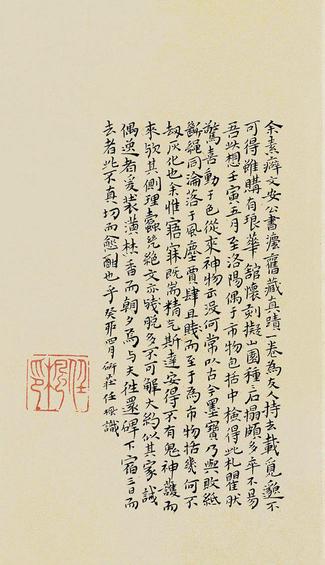 余素癖文安公書灋舊藏真蹟一卷爲友人持去載覓邈不
可得雖購有琅華舘懷剡擬山園種石搨頗多卒不易
吾此想壬寅五月至洛陽偶于市物包括中檢得此札瞿肰
驚喜動于色從來神物亦没何常以古今墨寶乃與敗紙
斷䋲同淪落于風塵賈肆且賤而至于爲市物括幾何不
刼灰化也余惟寤寐既耑精气斯達安得不有鬼神護而
來欤其側理蠹㒫絶文亦殘脱多不可解大約似其家誡
偶逸者爰裝潢林香而朝夕焉与夫徃還碑下宿三日而
去者此不真切而愈酣也乎癸卯四月
任
印